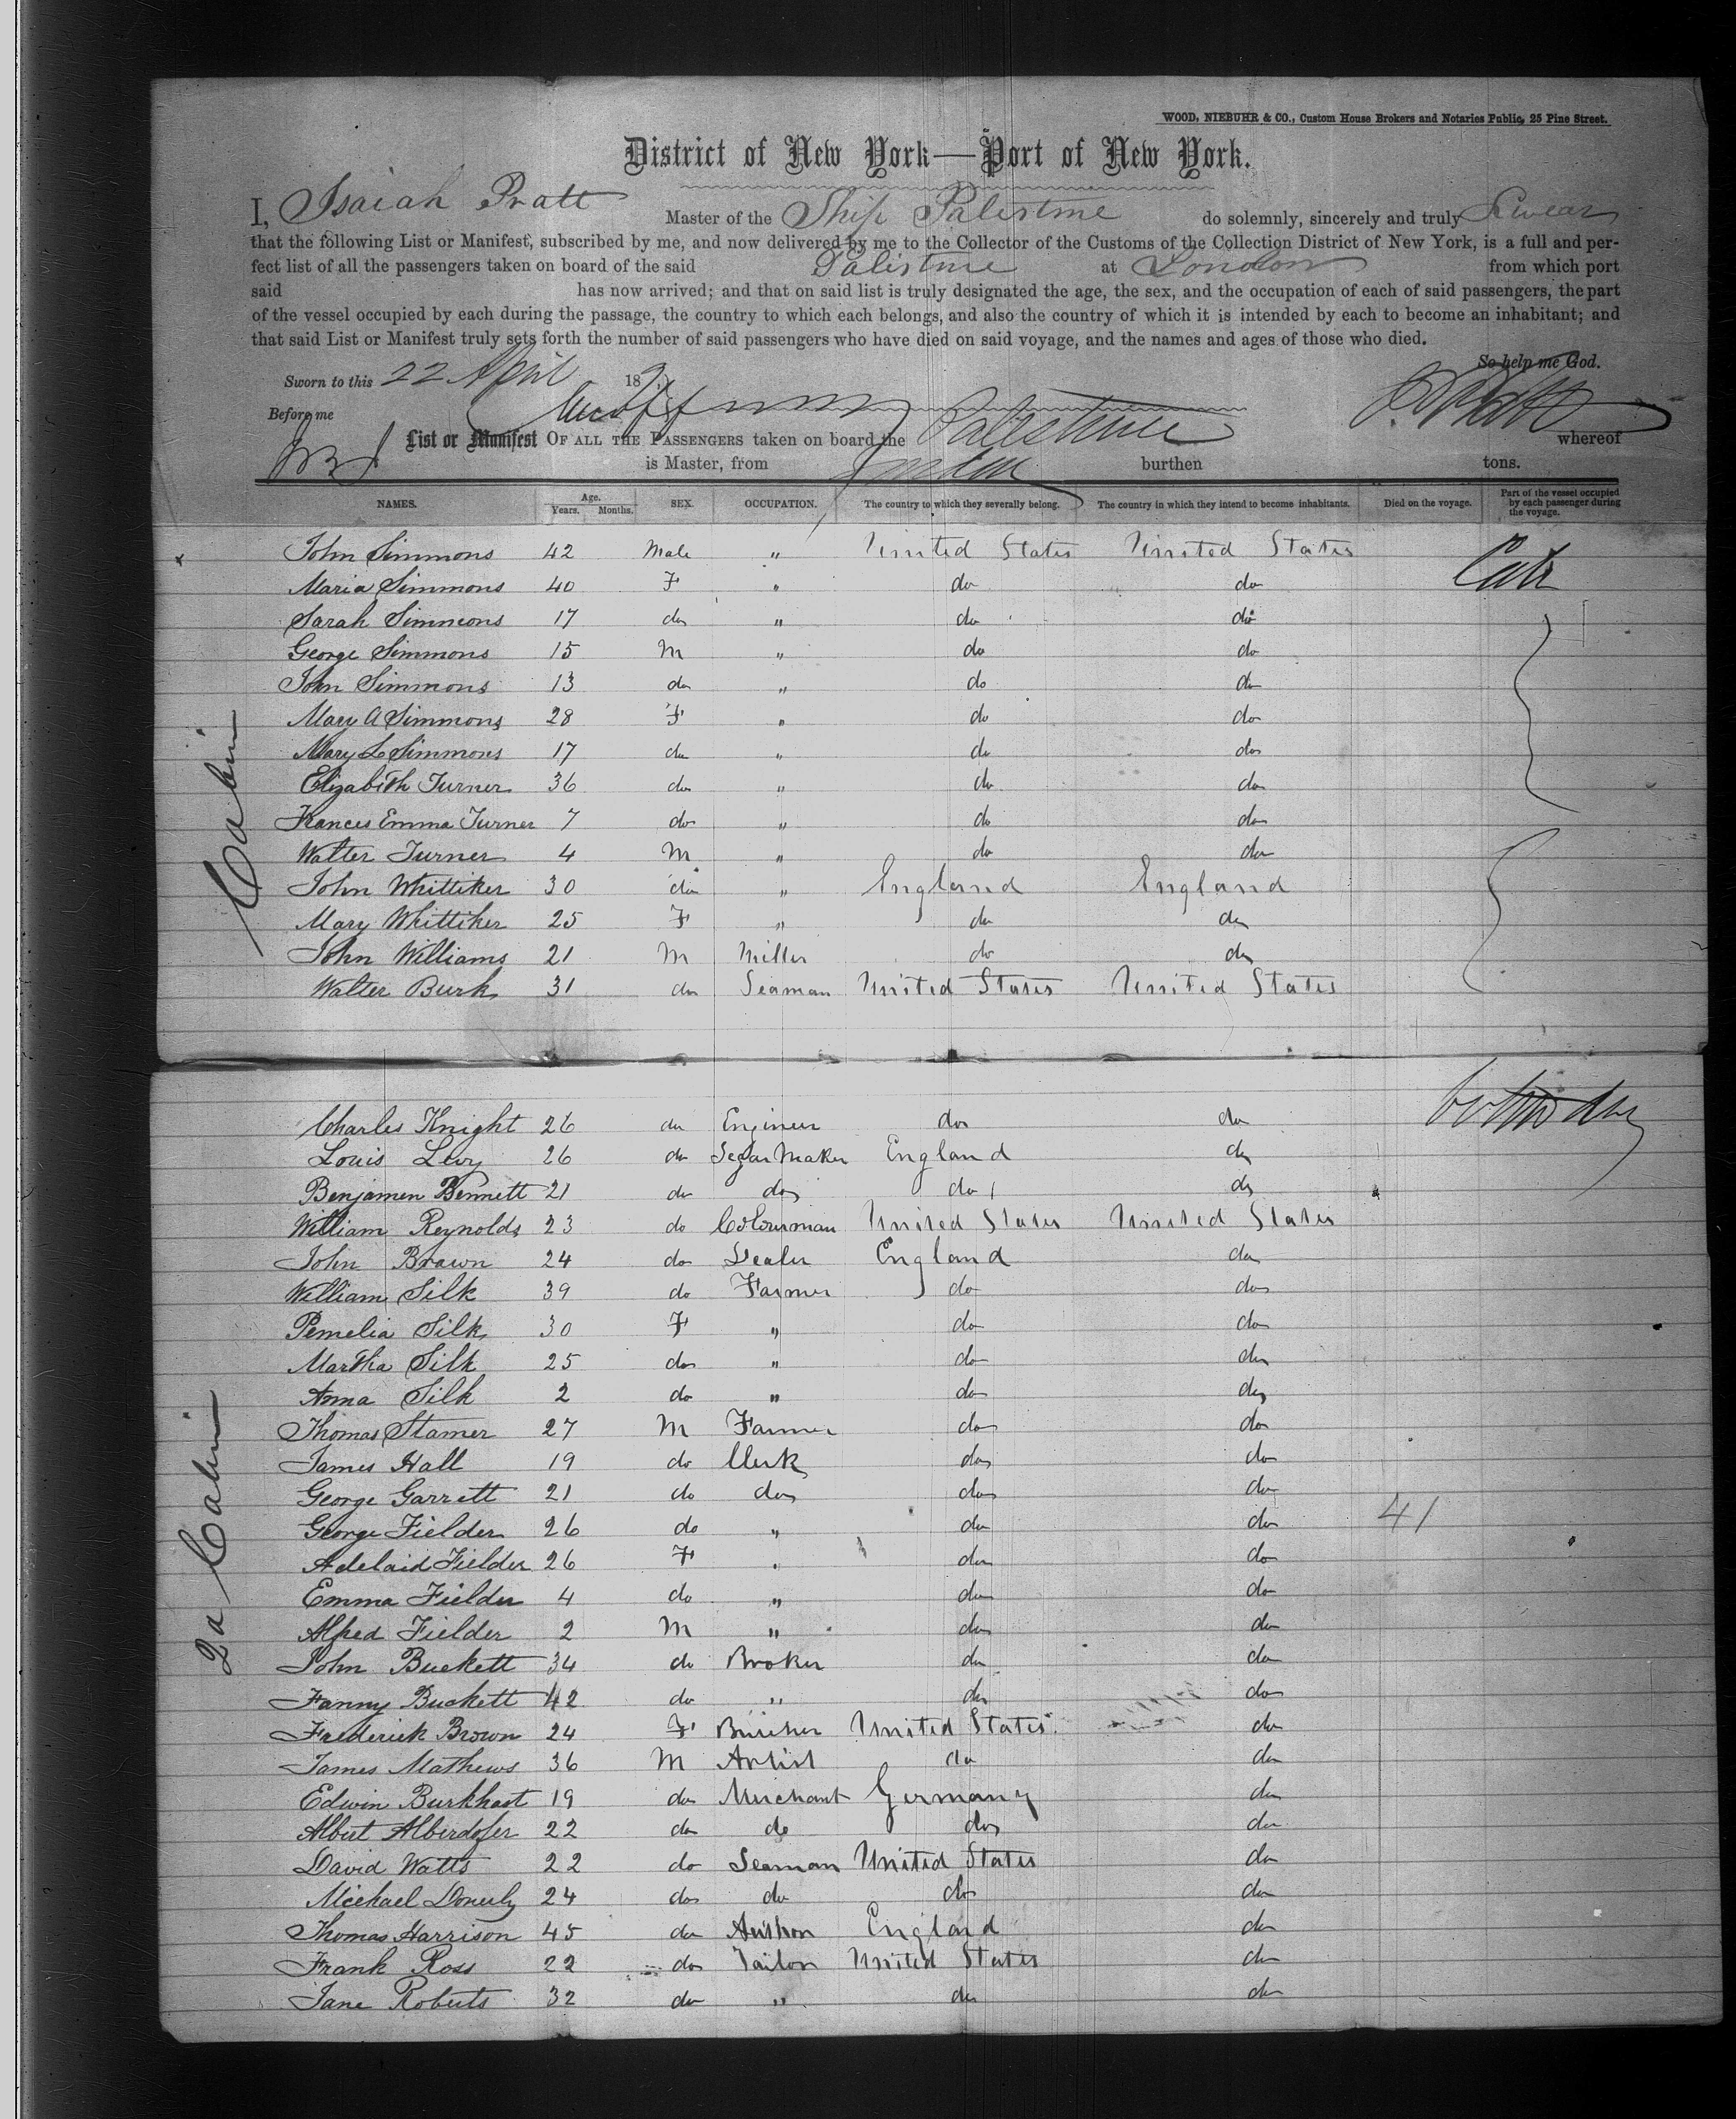 WOOD, NIEBUHR & CO., Custom House Brokers and Notaries Public, 25 Pine Street.
District of New York—Port of New York.
I, Isaiah Pratt Master of the Ship Palestine do solemnly, sincerely and truly Swear
that the following List or Manifest, subscribed by me, and now delivered by me to the Collector of the Customs of the Collection District of New York, is a full and per-
fect list of all the passengers taken on board of the said Palestine at London from which port
said has now arrived; and that on said list is truly designated the age, the sex, and the occupation of each of said passengers, the part
of the vessel occupied by each during the passage, the country to which each belongs, and also the country of which it is intended by each to become an inhabitant; and
that said List or Manifest truly sets forth the number of said passengers who have died on said voyage, and the names and ages of those who died.
So help me God.
Sworn to this 22 April 18
Before me
List or Manifest OF ALL THE PASSENGERS taken on board the Palestine whereof
is Master, from London burthen tons.
NAMES. Age. Years. Months. SEX. OCCUPATION. The country to which they severally belong. The country in which they intend to become inhabitants. Died on the voyage. Part of the vessel occupied by each passenger during the voyage.
Cabin
John Simmons 42 Male " United States United States
Maria Simmons 40 F " do do
Sarah Simmons 17 do " do do
George Simmons 15 M " do do
John Simmons 13 do " do do
Mary A Simmons 28 F " do do
Mary L Simmons 17 do " do do
Elizabeth Turner 36 do " do do
Frances Emma Turner 7 do " do do
Walter Turner 4 M " do do
John Whittiker 30 do " England England
Mary Whittiker 25 F " do do
John Williams 21 M Miller do do
Walter Burk 31 do Seaman United States United States
2d Cabin
Charles Knight 26 do Engineer do do
Louis Levy 26 do Segar Maker England do
Benjamen Bennett 21 do do do do
William Reynolds 23 do Colourman United States United States
John Brown 24 do Dealer England do
William Silk 39 do Farmer do do
Pemelia Silk 30 F " do do
Martha Silk 25 do " do do
Anna Silk 2 do " do do
Thomas Stamer 27 M Farmer do do
James Hall 19 do Clerk do do
George Garrett 21 do do do do
George Fielder 26 do " do do 41
Adelaid Fielder 26 F " do do
Emma Fielder 4 do " do do
Alfred Fielder 2 M " do do
John Buckett 34 do Broker do do
Fanny Buckett 42 do " do do
Frederick Brown 24 F Butcher United States do
James Mathews 36 M Artist do do
Edwin Burkhart 19 do Merchant Germany do
Albert Alberdofer 22 do do do do
David Watts 22 do Seaman United States do
Michael 24 do do do do
Thomas Harrison 45 do England do
Frank Ross 22 do Tailor United States do
Jane Roberts 32 do " do do